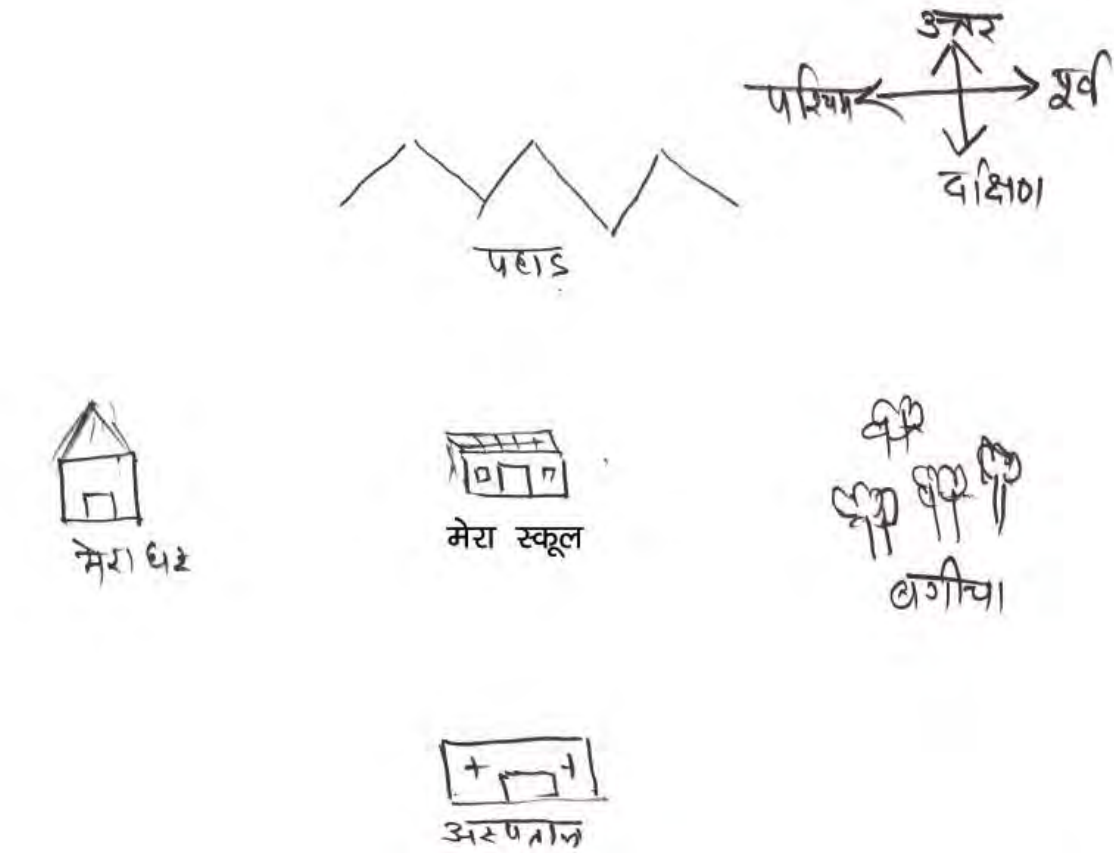 उत्तर
पश्चिम
पूर्व
दक्षिण
पहाड़
मेरा घर
मेरा स्कूल
बगीचा
अस्पताल